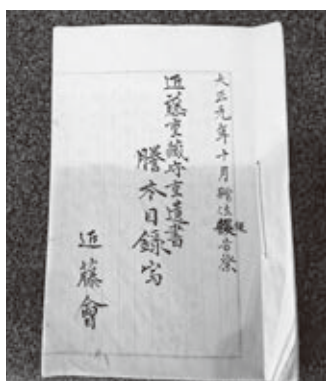 大正元年十月贈位報告祭
近藤重蔵守重遺書
謄本目録写
近藤會